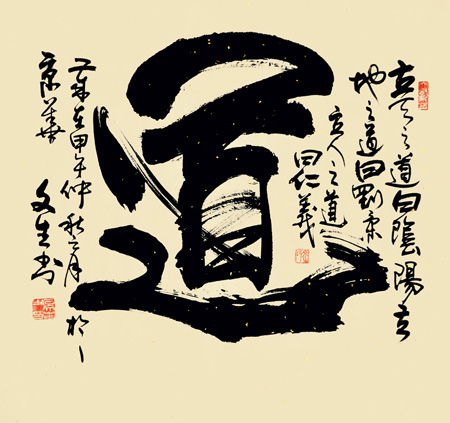 道
立天之道曰陰陽立
地之道曰剛柔
立人之道
曰仁義
歲在甲午仲秋之月於
京華
文生书